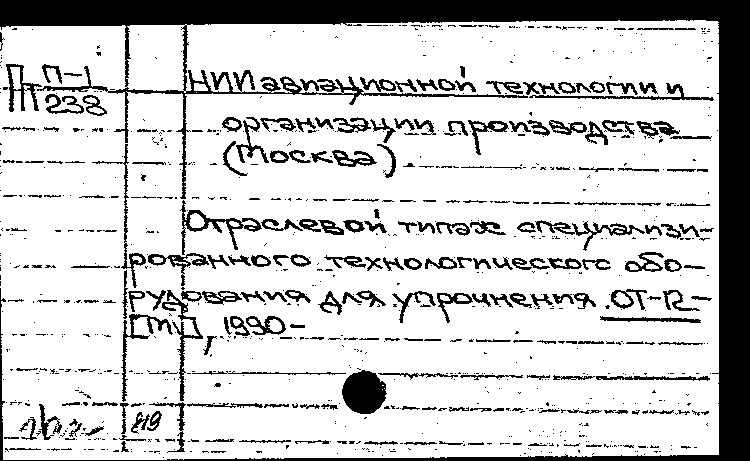 П П-1
П 238
НИИ авиационной технологии и
организации производства
(Москва).
Отраслевой типаж специализи-
рованного технологического обо-
рудования для упрочнения ОТ-12-
[М], 1990-
819